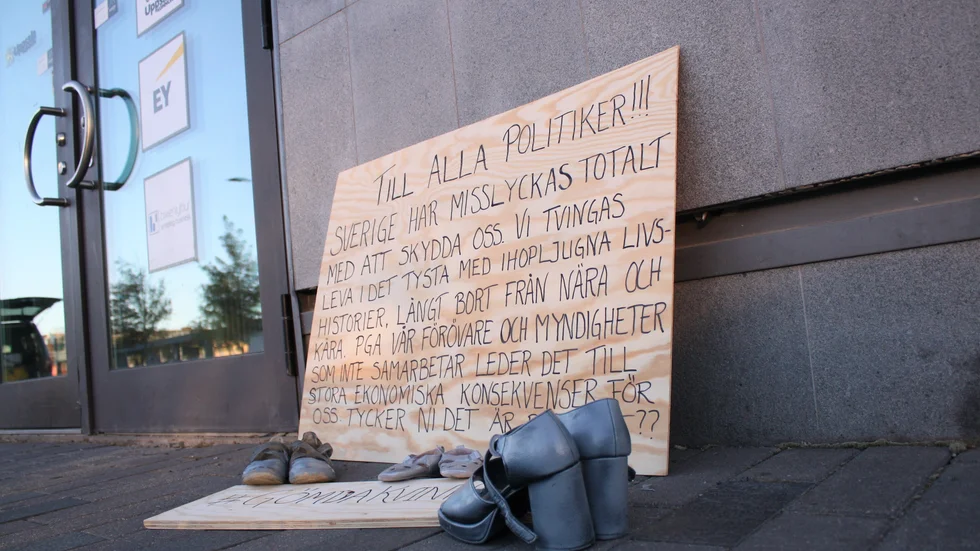 EY
TILL ALLA POLITIKER!!!
SVERIGE HAR MISSLYCKAS TOTALT
MED ATT SKYDDA OSS. VI TVINGAS
LEVA I DET TYSTA MED IHOPLJUGNA LIVS-
HISTORIER, LÅNGT BORT FRÅN NÄRA OCH
KÄRA. PGA VÅR FÖRÖVARE OCH MYNDIGHETER
SOM INTE SAMARBETAR LEDER DET TILL
STORA EKONOMISKA KONSEKVENSER FÖR
OSS. TYCKER NI DET ÄR ??